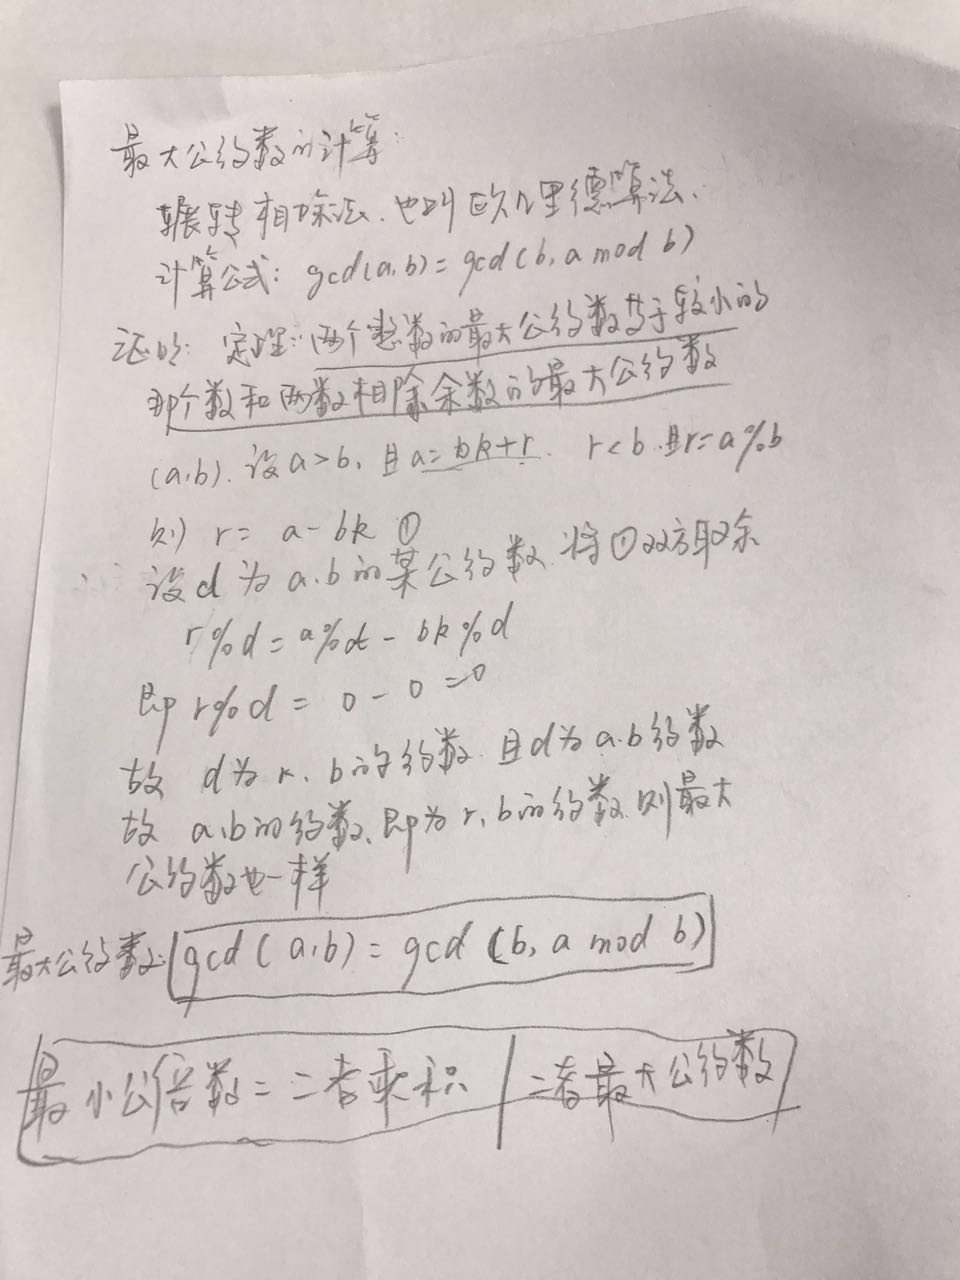 最大公约数的计算:
辗转相除法.也叫欧几里德算法.
计算公式: gcd(a,b)=gcd(b, a mod b)
证明: 定理:两个整数的最大公约数等于较小的
那个数和两数相除余数的最大公约数
(a,b). 设a>b, 且a=bk+r. r<b.且r=a%b
则 r= a-bk ①
设d为a.b的某公约数.将①双方取余
r%d=a%d- bk%d
即r%d= 0-0=0
故 d为r. b的约数.且d为a.b约数
故 a,b的约数,即为r,b的约数.则最大
公约数也一样
最大公约数: gcd(a,b)=gcd(b, a mod b)
最小公倍数=二者乘积/二者最大公约数